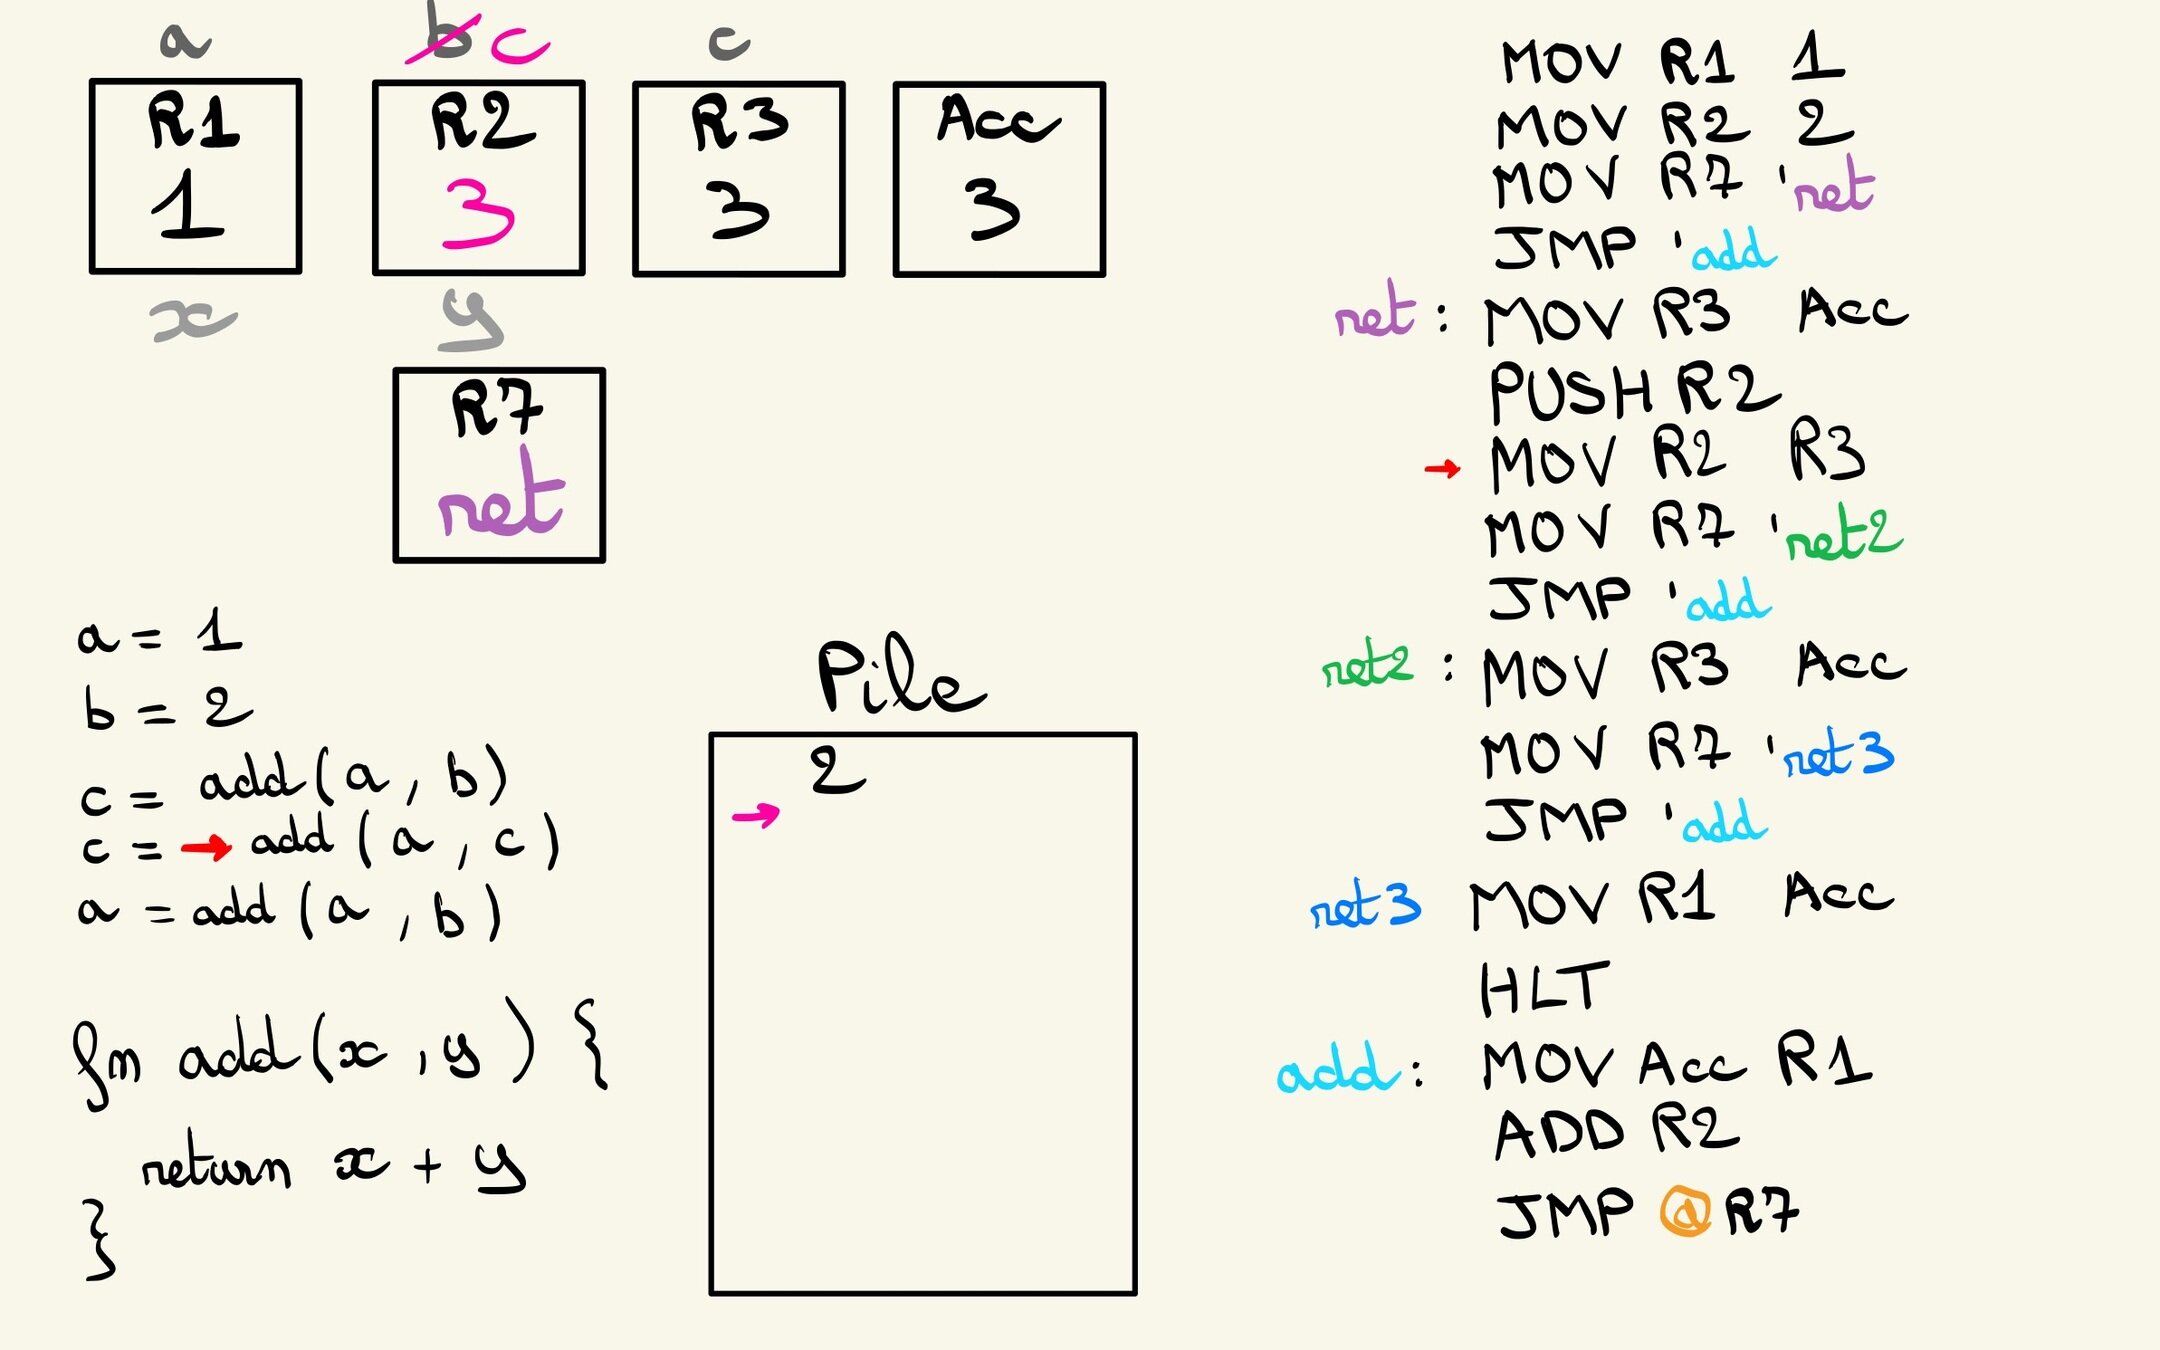 a
b c
c
R1
1
R2
3
R3
3
Acc
3
x
y
R7
ret
a = 1
b = 2
c = add(a, b)
c = → add(a, c)
a = add(a, b)
fn add(x, y) {
return x + y
}
Pile
2
→
MOV R1 1
MOV R2 2
MOV R7 'ret
JMP 'add
ret : MOV R3 Acc
PUSH R2
→ MOV R2 R3
MOV R7 'ret2
JMP 'add
ret2 : MOV R3 Acc
MOV R7 'ret3
JMP 'add
ret3 MOV R1 Acc
HLT
add : MOV Acc R1
ADD R2
JMP @R7